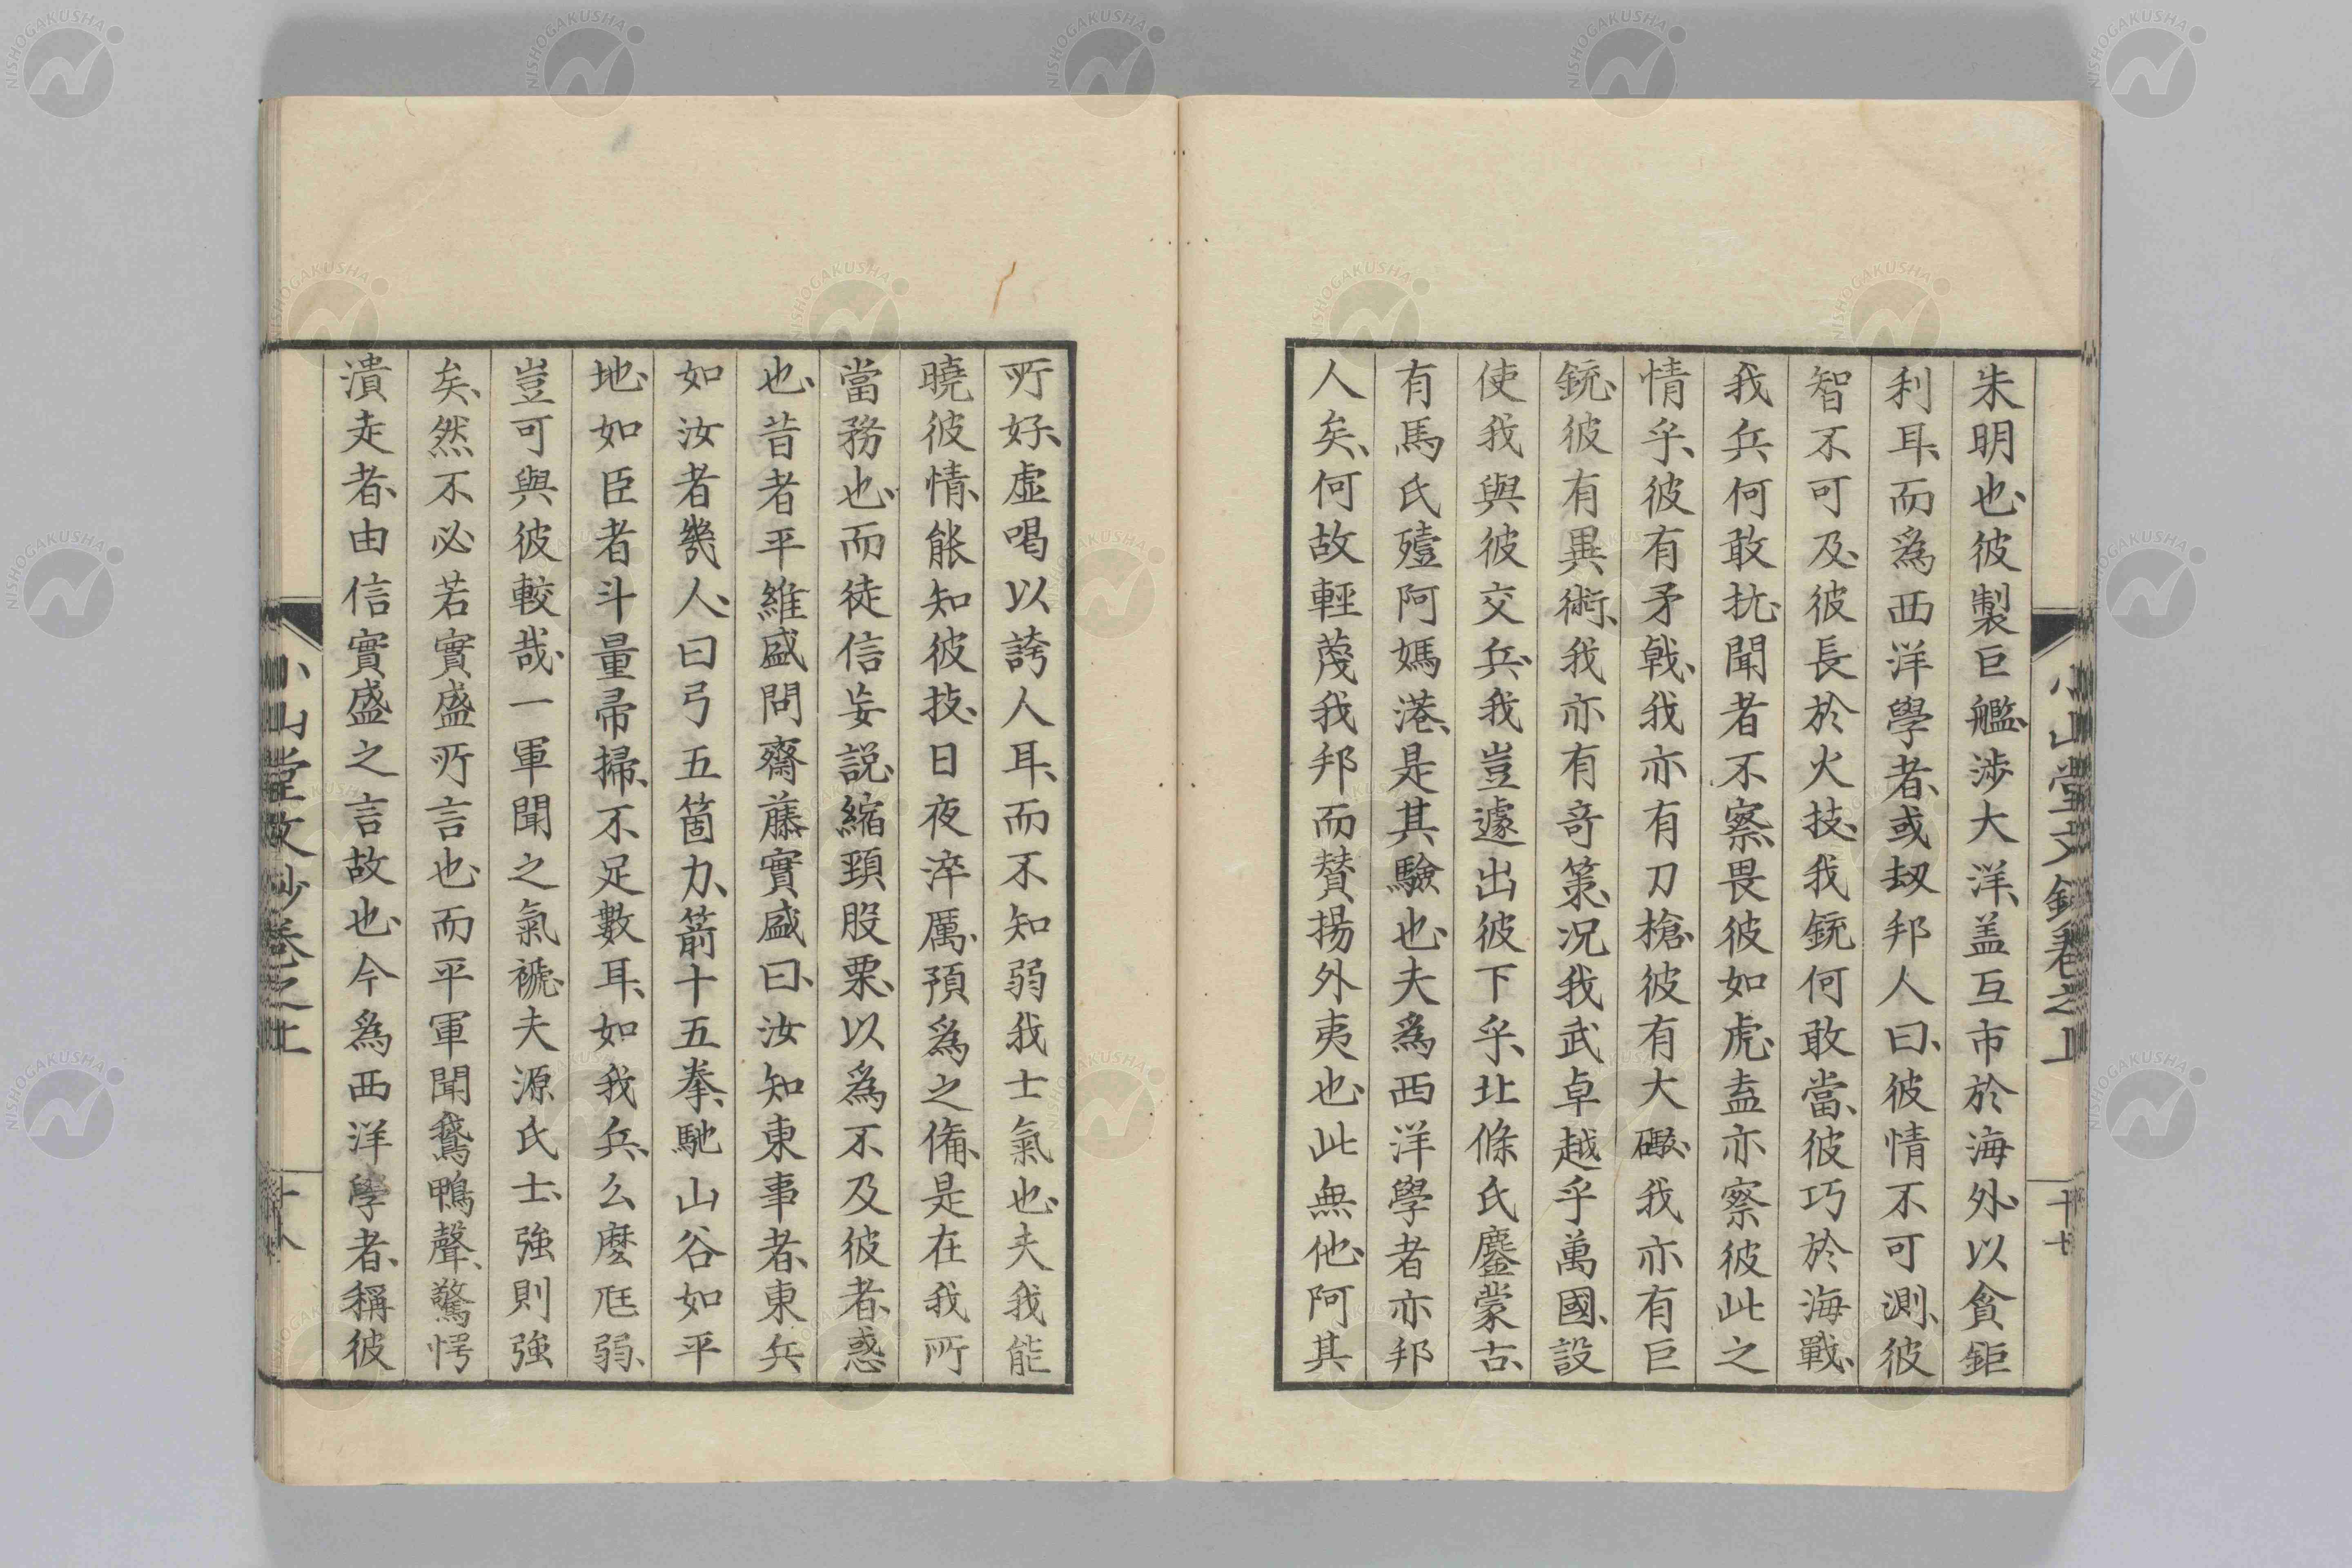 朱明也、彼製巨艦、渉大洋、盖互市於海外、以貪鉅
利耳、而爲西洋學者、或刼邦人曰、彼情不可測、彼
智不可及、彼長於火技、我銃何敢當、彼巧於海戰、
我兵何敢抗、聞者不察、畏彼如虎、盍亦察彼此之
情乎、彼有矛戟、我亦有刀槍、彼有大礮、我亦有巨
銃、彼有異術、我亦有竒策、况我武卓越乎萬國、設
使我與彼交兵、我豈遽出彼下乎、北條氏鏖蒙古、
有馬氏殪阿媽港、是其驗也、夫爲西洋學者亦邦
人矣、何故輕蔑我邦而賛揚外夷也、此無他、阿其
小山堂文鈔卷之上
十七
所好、虛喝以誇人耳、而不知弱我士氣也、夫我能
曉彼情、能知彼技、日夜淬厲、預爲之備、是在我所
當務也、而徒信妄説、縮頸股栗、以為不及彼者、惑
也、昔者平維盛問齋藤實盛曰、汝知東事者、東兵
如汝者幾人、曰弓五箇力、箭十五拳、馳山谷如平
地、如臣者斗量帚掃、不足數耳、如我兵、么麽尫弱、
豈可與彼較哉、一軍聞之氣褫、夫源氏士、強則強
矣、然不必若實盛所言也、而平軍聞鵞鴨聲、驚愕
潰走者、由信實盛之言故也、今爲西洋學者、稱彼
小山堂文鈔卷之上
十八
NISHOGAKUSHA